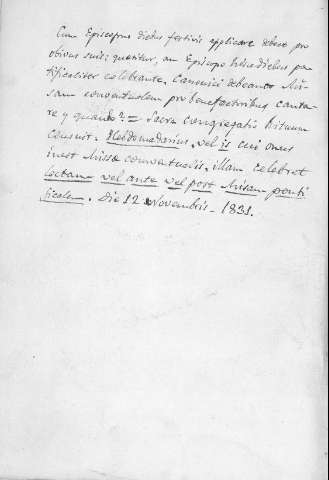 Cum Episcopus diebus festivis applicare debeat pro
ovibus suis: quæritur, an Episcopo his diebus pon
tificaliter celebrante, Canonici debeant Mis-
sam conventualem pro benefactoribus canta-
re y quando? = Sacra Congregatio Rituum
Censuit. Hebdomadarius, vel is cui onus
inest Missæ conventualis, illam celebret
lectam vel ante vel post Missam ponti
ficalem. Die 12 Novembris - 1831.